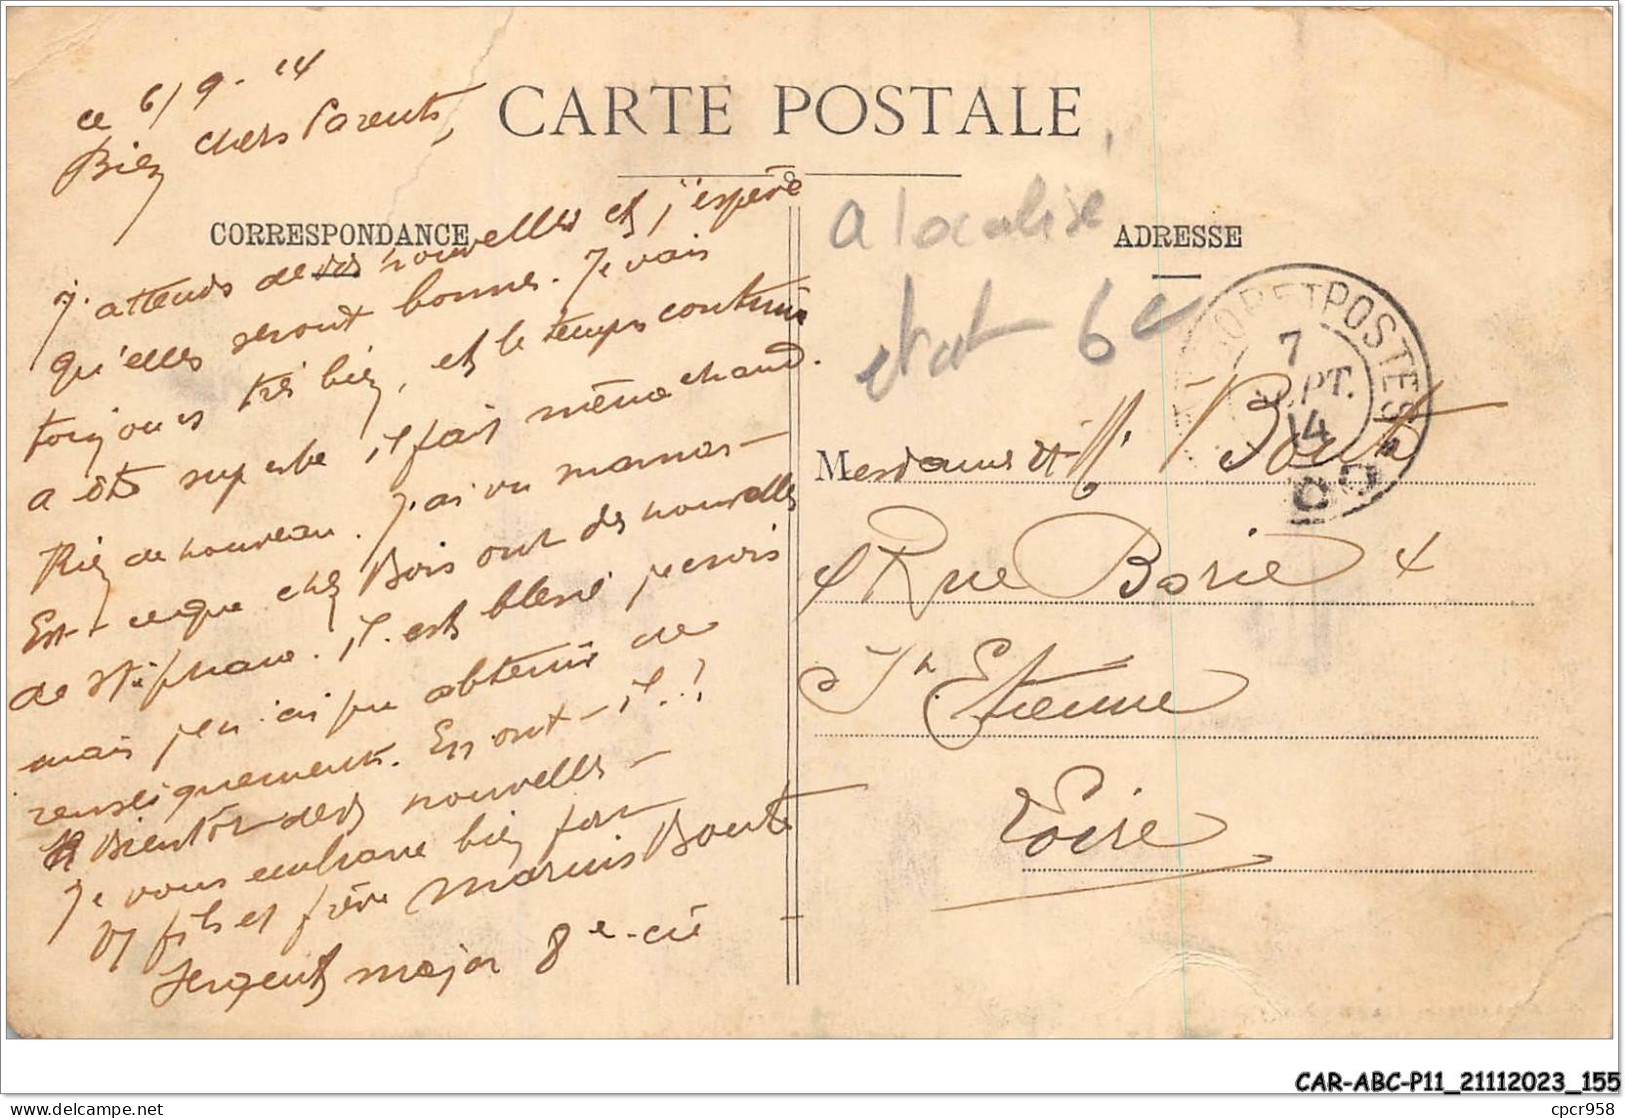 CARTE POSTALE
CORRESPONDANCE
ce 6/9-14
Bien chers Parents,
J'attends de vos nouvelles et j'espère
qu'elles seront bonnes. Je vais
toujours très bien, et le temps continue
a été superbe il fait même chaud.
Rien de nouveau. J'ai vu
Est-ce que chez Bois ont des nouvelles
de Stéphane. il est blessé je crois
mais je n'ai pu obtenir de
renseignements. En ont-il.?
A Bientôt de nouvelles-
Je vous embrasse bien fort
V/ fils et frère Marius Bout
Sergent major 8e cie
a localise
etat 6€
ADRESSE
TRESOR ET POSTES
7
SEPT.
14
Mesdames et M. Bout
4 Rue Borie 4
St Etienne
Loire
CAR-ABC-P11_21112023_155
delcampe.net
cpcr958